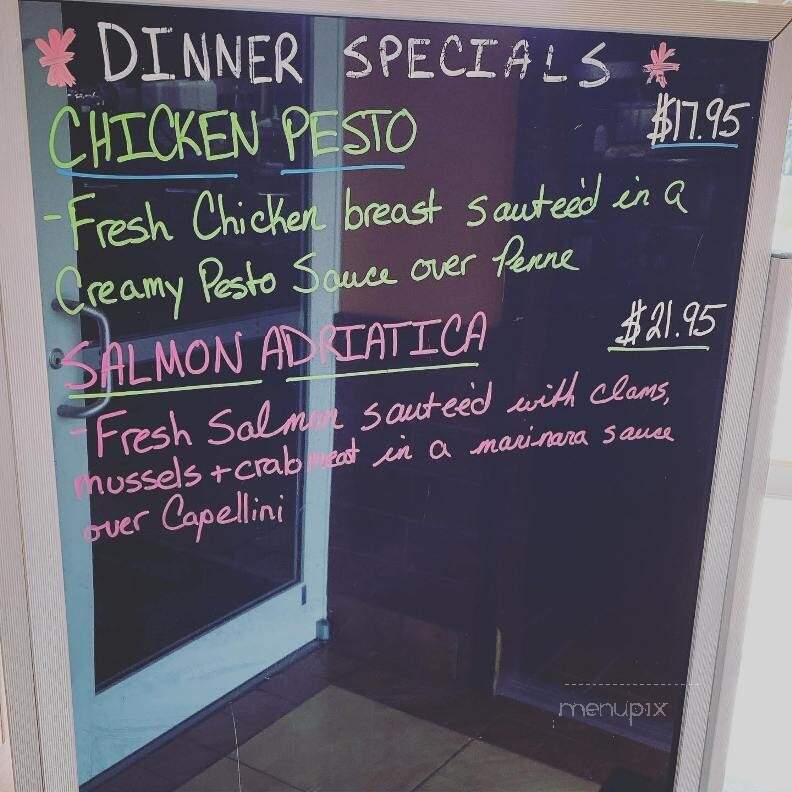 * DINNER SPECIALS *
CHICKEN PESTO $17.95
-Fresh Chicken breast sauteéd in a
Creamy Pesto Sauce over Penne
SALMON ADRIATICA $21.95
-Fresh Salmon sauteéd with clams,
mussels + crab meat in a marinara sauce
over Capellini
menupix